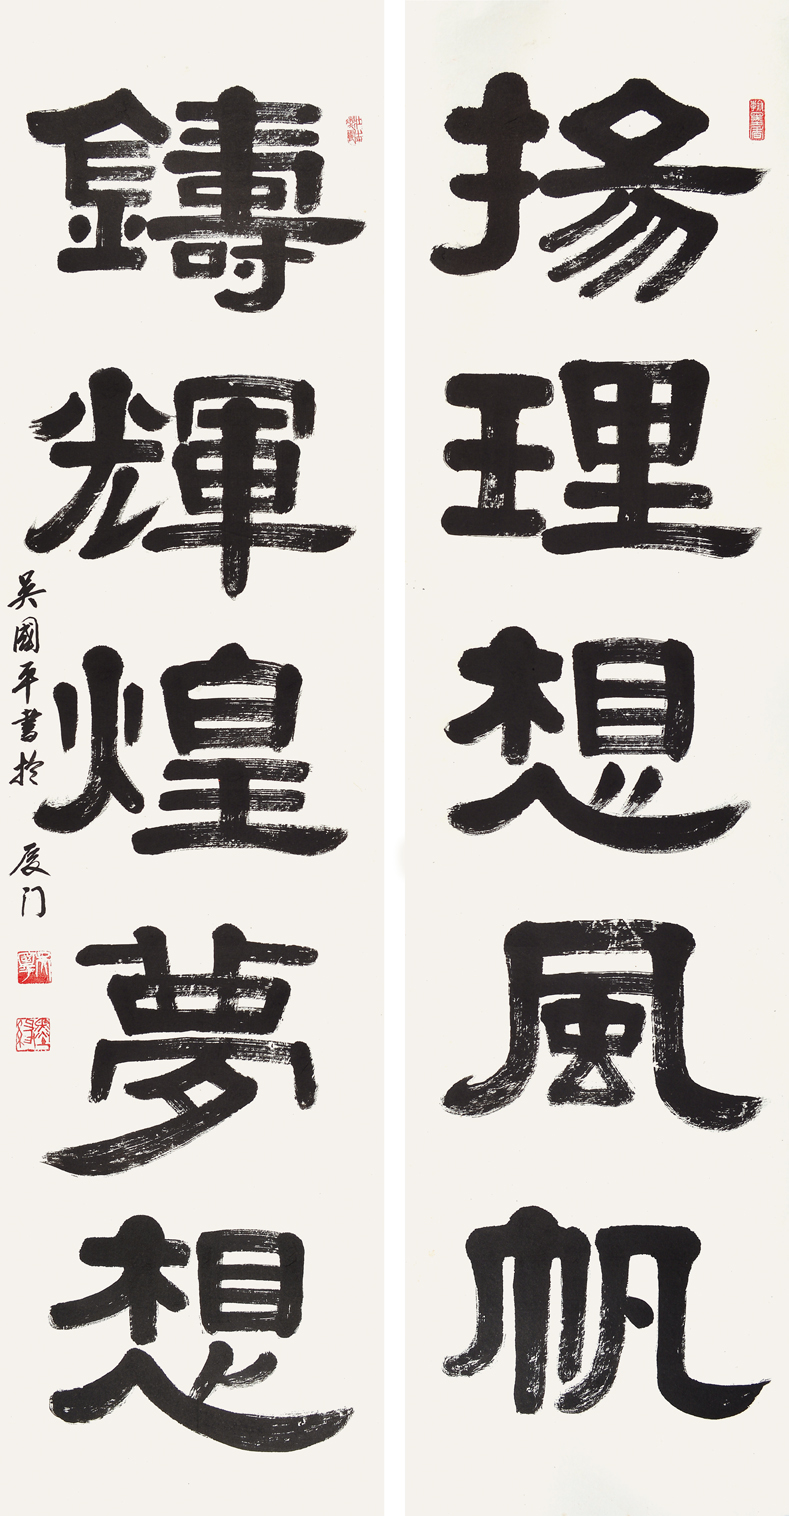 揚理想風帆
鑄輝煌夢想
吴國平書於厦门